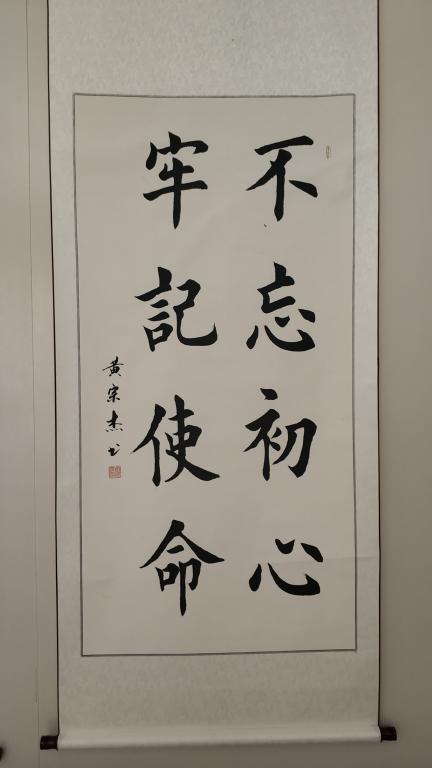 不忘初心
牢記使命
黄宗杰书